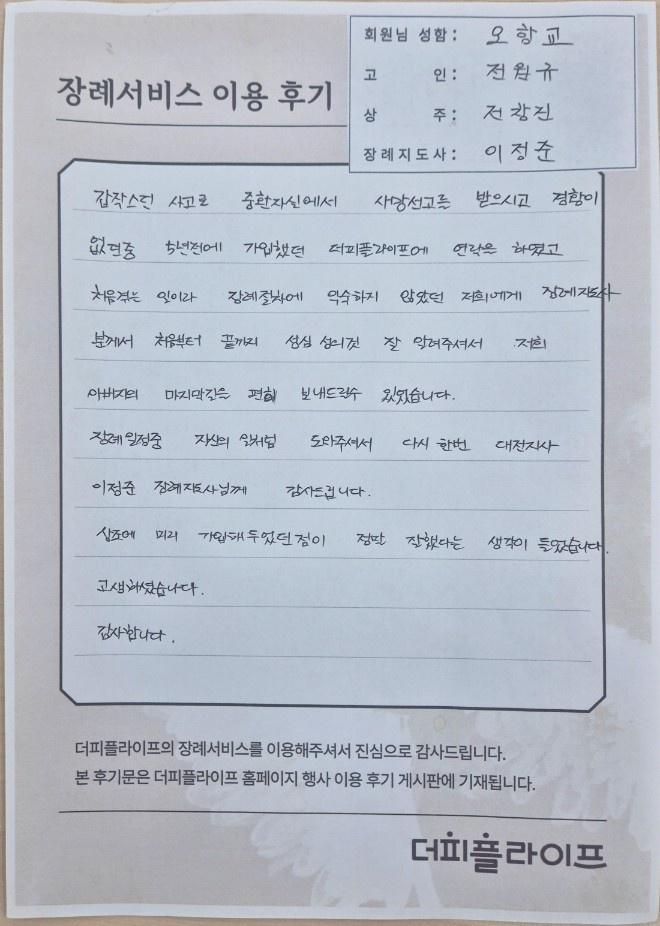 회원님 성함: 오항교
고 인: 전원규
상 주: 전창진
장례지도사: 이정준
장례서비스 이용 후기
갑작스런 사고로 중환자실에서 사망선고를 받으시고 경황이
없던중 5년전에 가입했던 더피플라이프에 연락을 하였고
처음겪는 일이라 장례절차에 익숙하지 않았던 저희에게 장례지도사
분께서 처음부터 끝까지 성심 성의것 잘 알려주셔서 저희
아버지의 마지막길은 편히 보내드릴수 있었습니다.
장례일정중 자신의 일처럼 도와주셔서 다시 한번 대전지사
이정준 장례지도사님께 감사드립니다.
상조에 미리 가입해 두었던 점이 정말 잘했다는 생각이 들었습니다.
고생하셨습니다.
감사합니다.
더피플라이프의 장례서비스를 이용해주셔서 진심으로 감사드립니다.
본 후기문은 더피플라이프 홈페이지 행사 이용 후기 게시판에 기재됩니다.
더피플라이프